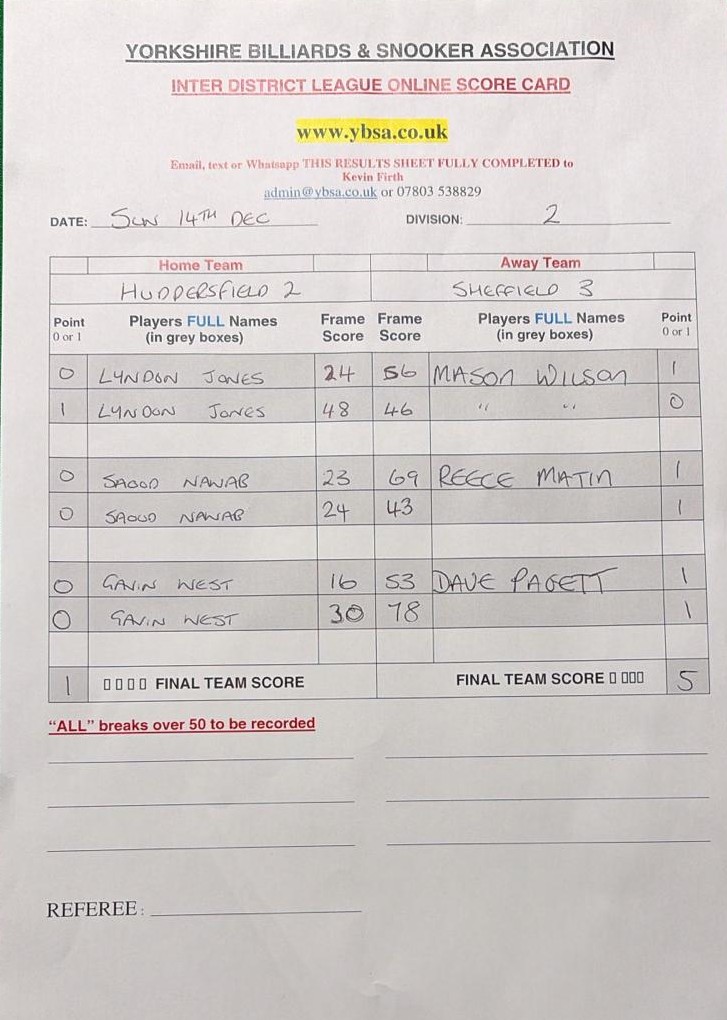 YORKSHIRE BILLIARDS & SNOOKER ASSOCIATION
INTER DISTRICT LEAGUE ONLINE SCORE CARD
www.ybsa.co.uk
Email, text or Whatsapp THIS RESULTS SHEET FULLY COMPLETED to
Kevin Firth
admin@ybsa.co.uk or 07803 538829
DATE: SUN 14TH DEC DIVISION: 2
Home Team Away Team
HUDDERSFIELD 2 SHEFFIELD 3
Point Players FULL Names Frame Frame Players FULL Names Point
0 or 1 (in grey boxes) Score Score (in grey boxes) 0 or 1
0 LYNDON JONES 24 56 MASON WILSON 1
1 LYNDON JONES 48 46 " " 0
0 SAOOD NAWAB 23 69 REECE MATIN 1
0 SAOUD NAWAB 24 43 1
0 GAVIN WEST 16 53 DAVE PAGETT 1
0 GAVIN WEST 30 78 1
1 FINAL TEAM SCORE FINAL TEAM SCORE 5
"ALL" breaks over 50 to be recorded
REFEREE: